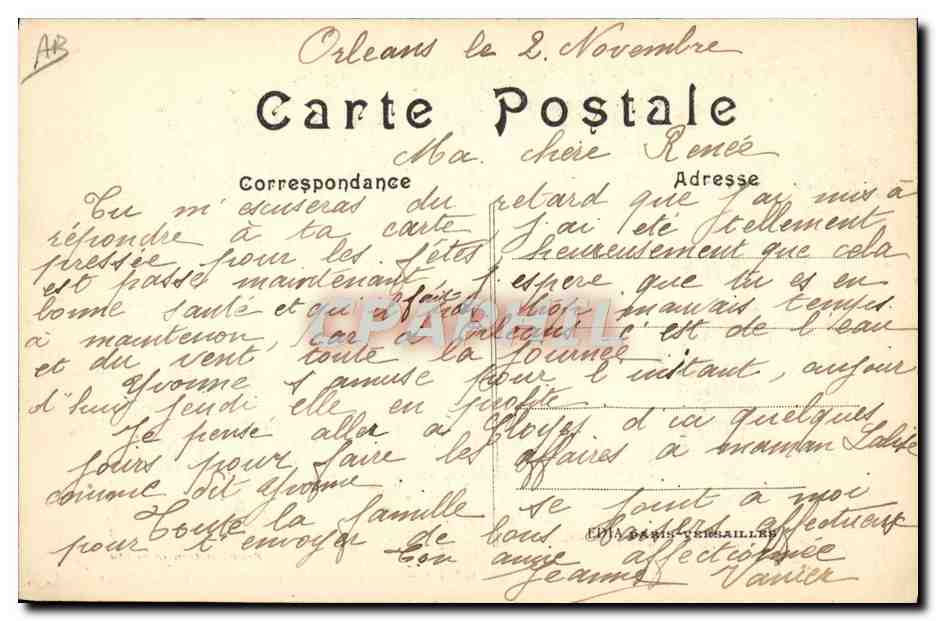 AB
Orleans le 2. Novembre
Carte Postale
Ma. chère Renée
Correspondance
Adresse
Tu m'escuseras du retard que j'ai mis à
répondre à ta carte, j'ai été tellement
pressée pour les fêtes, heureusement que cela
est passé maintenant, j'espère que tu es en
bonne santé et qu'il fait pas trop mauvais temps
à maintenon, car à orléans c'est de l'eau
et du vent toute la journée
Yvonne s'amuse pour l'instant, aujour
d'hui jeudi elle en profite
Je pense aller à Cloyes d'ici quelques
jours pour faire les affaires à maman
comme dit Yvonne.
Toute la famille se joint à moi
pour t'envoyer de bons baisers affectueux
EDIA PARIS-VERSAILLES
Ton amie affectionnée
Jeanne Vanier
CPARAMA